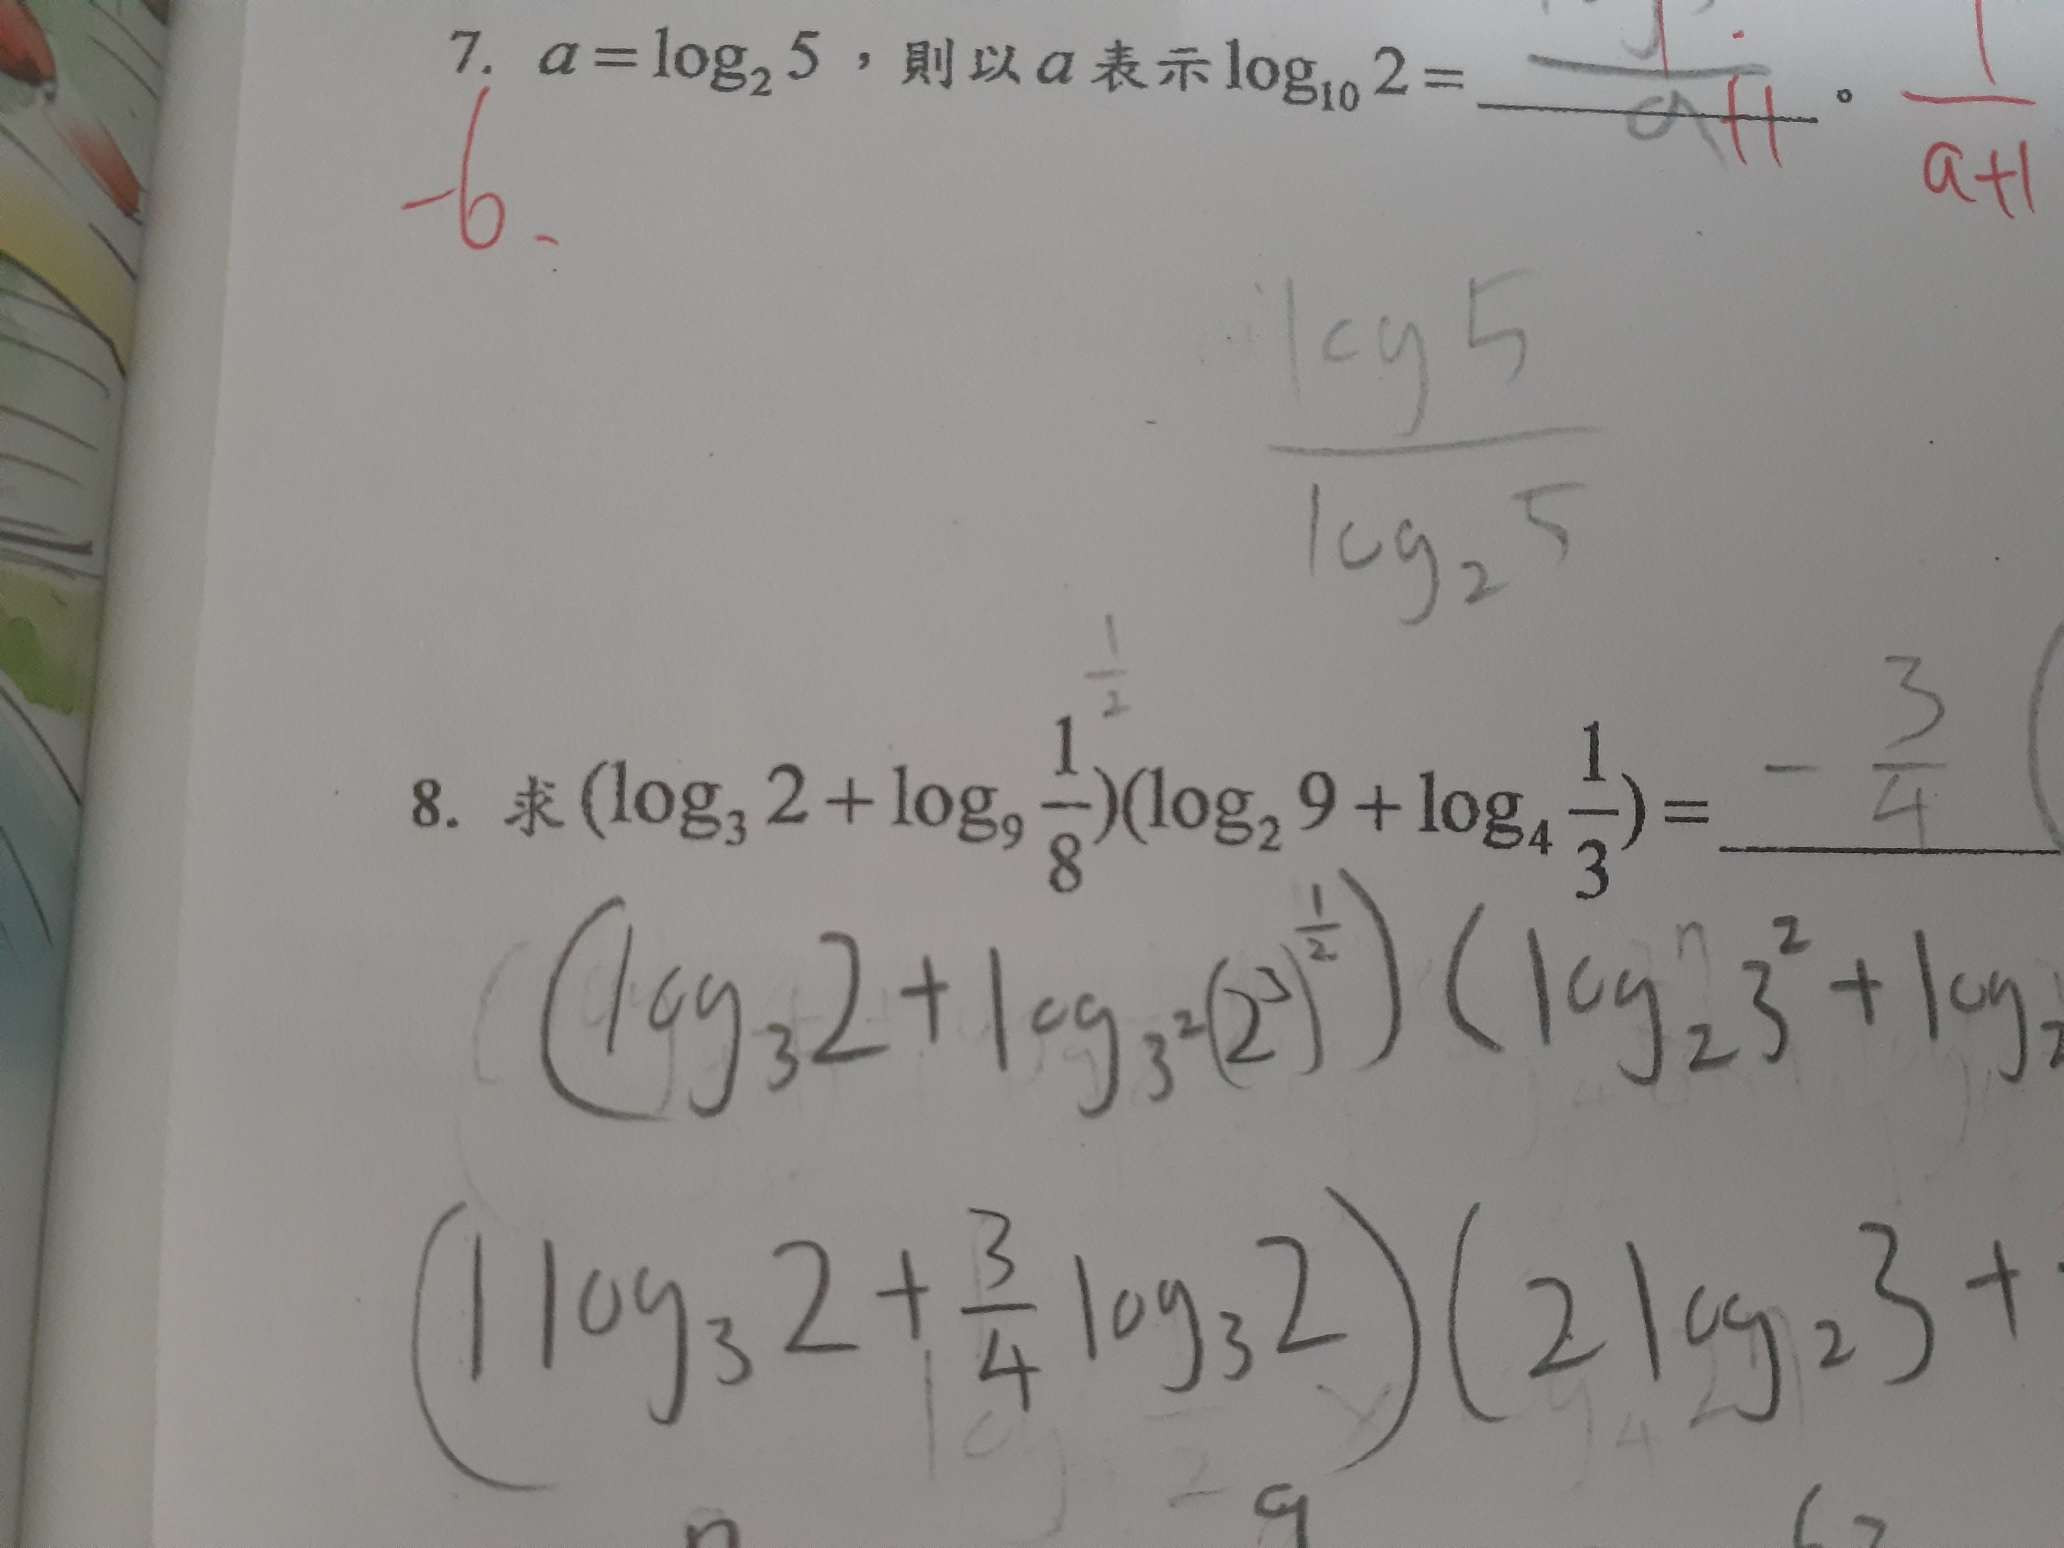 7. a = log₂ 5,則以 a 表示 log₁₀ 2 = ———。
a+1
1/(a+1)
-6.
log 5
log₂ 5
1/2
8. 求 (log₃ 2 + log₉ 1/8)(log₂ 9 + log₄ 1/3) = - 3/4 (
(log₃ 2 + log₃² (2³)^1/2) (log₂ 3² + log₂
(1 log₃ 2 + 3/4 log₃ 2) (2 log₂ 3 +